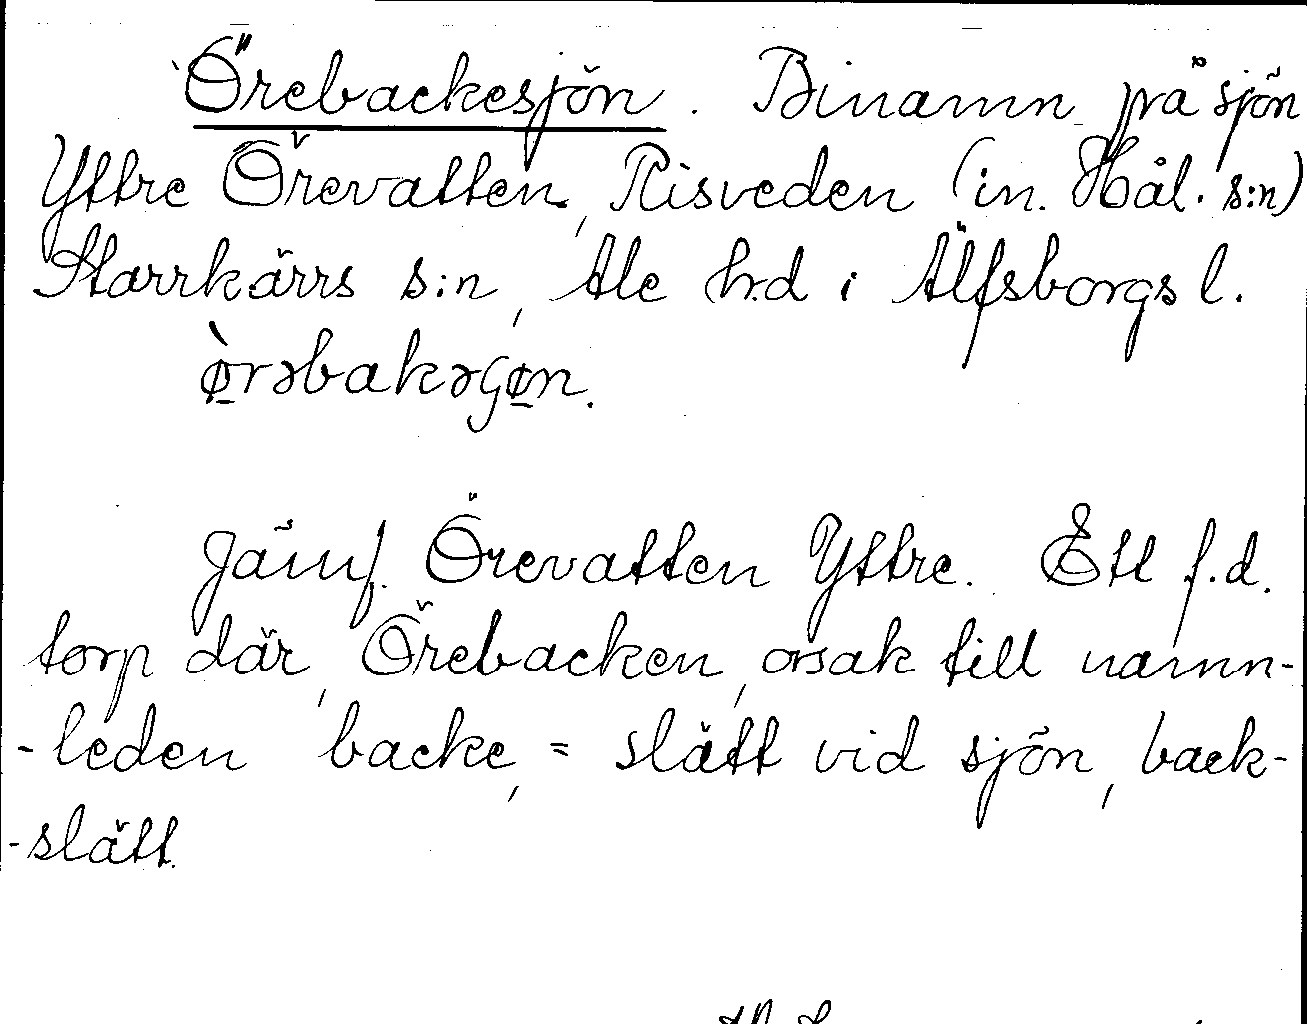 Örebackesjön. Binamn på sjön
Yttre Örevatten, Risveden (in. Hål. s:n)
Starrkärrs s:n, Ale hd i Älfsborgs l.
ø̀rəbakəʂøn.
Jämf. Örevatten Yttre. Ett f.d.
torp där, Örebacken, orsak till namn-
-leden backe, = slätt vid sjön, back-
-slätt.